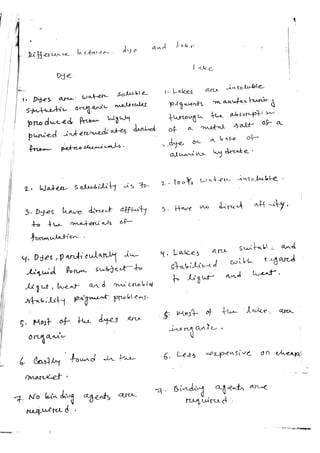 Difference between dye and lake
Dye
Lake
1. Dyes are water soluble
synthetic organic molecules
produced from highly
puried intermediates derived
from petrochemicals.
1. Lakes are insoluble
pigments manufacturing
through the absorption
of a metal salt of a
dye on a base of
alumina hydrate.
2. Water solubility is 70.
2. 100% water insoluble.
3. Dyes have direct affinity
to the materials of
formulation.
3. Have no direct affinity.
4. Dyes, particularly in
liquid form subject to
light, heat and microbial
stability pigment problems.
4. Lakes are suitable and
stabilised with regard
to light and heat.
5. Most of the dyes are
organic
5. Most of the lakes are
inorganic.
6. Costly found in the
market.
6. Less expensive or cheaper
7. No binding agents are
required.
7. Binding agents are
required.